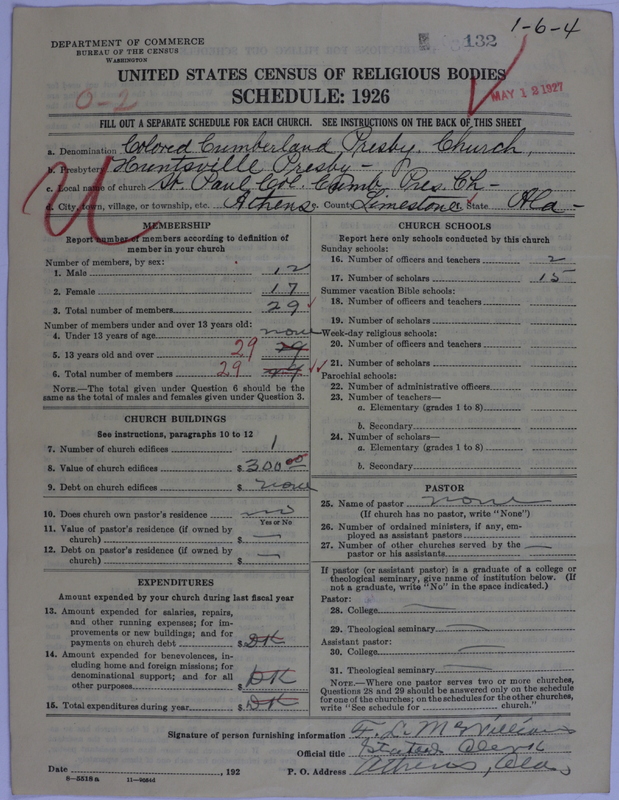 1-6-4
DEPARTMENT OF COMMERCE
BUREAU OF THE CENSUS
WASHINGTON
132
UNITED STATES CENSUS OF RELIGIOUS BODIES
SCHEDULE: 1926
MAY 12 1927
0-2
FILL OUT A SEPARATE SCHEDULE FOR EACH CHURCH. SEE INSTRUCTIONS ON THE BACK OF THIS SHEET
a. Denomination Colored Cumberland Presby. Church
b. Presbytery Huntsville Presby-
c. Local name of church St. Paul Col. Cumb. Pres. Ch-
d. City, town, village, or township, etc. Athens County Limestone State Ala-
MEMBERSHIP
Report number of members according to definition of
member in your church
Number of members, by sex:
1. Male 12
2. Female 17
3. Total number of members 29
Number of members under and over 13 years old:
4. Under 13 years of age none
5. 13 years old and over 29
6. Total number of members 29
NOTE.—The total given under Question 6 should be
same as the total of males and females given under Question 3.
CHURCH BUILDINGS
See instructions, paragraphs 10 to 12
7. Number of church edifices 1
8. Value of church edifices $ 300 00
9. Debt on church edifices $ none
10. Does church own pastor's residence no
Yes or No
11. Value of pastor's residence (if owned by
church) $ —
12. Debt on pastor's residence (if owned by
church) $ —
EXPENDITURES
Amount expended by your church during last fiscal year
13. Amount expended for salaries, repairs,
and other running expenses; for im-
provements or new buildings; and for
payments on church debt $ DK
14. Amount expended for benevolences, in-
cluding home and foreign missions; for
denominational support; and for all
other purposes $ DK
15. Total expenditures during year $ DK
CHURCH SCHOOLS
Report here only schools conducted by this church
Sunday schools:
16. Number of officers and teachers 2
17. Number of scholars 15
Summer vacation Bible schools:
18. Number of officers and teachers
19. Number of scholars
Week-day religious schools:
20. Number of officers and teachers
21. Number of scholars
Parochial schools:
22. Number of administrative officers
23. Number of teachers—
a. Elementary (grades 1 to 8)
b. Secondary
24. Number of scholars—
a. Elementary (grades 1 to 8)
b. Secondary
PASTOR
25. Name of pastor none
(If church has no pastor, write "None")
26. Number of ordained ministers, if any, em-
ployed as assistant pastors
27. Number of other churches served by the
pastor or his assistants —
If pastor (or assistant pastor) is a graduate of a college or
theological seminary, give name of institution below. (If
not a graduate, write "No" in the space indicated.)
Pastor:
28. College —
29. Theological seminary —
Assistant pastor:
30. College —
31. Theological seminary —
NOTE.—Where one pastor serves two or more churches,
Questions 28 and 29 should be answered only on the schedule
for one of the churches; on the schedules for the other churches,
write "See schedule for church."
Signature of person furnishing information F. L. McWilliams
Official title Stated Clerk
Date , 192 P. O. Address Athens, Ala.
8—5518a